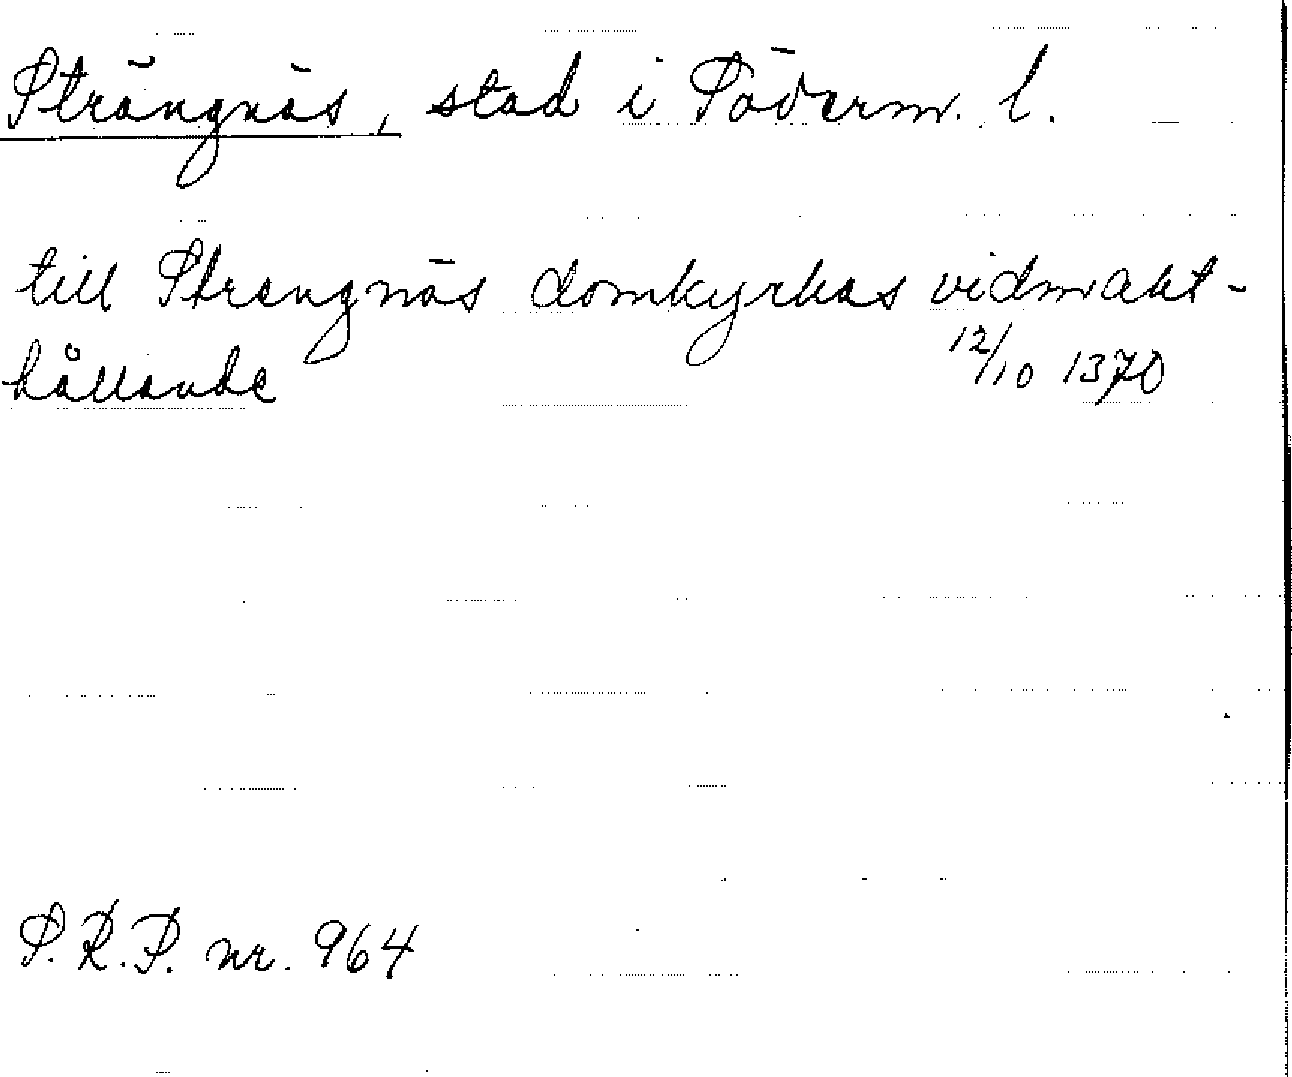 Strängnäs, stad i Söderm. l.
till Strengnäs domkyrkas vidmakt-
hållande 12/10 1370
S.R.P. nr. 964